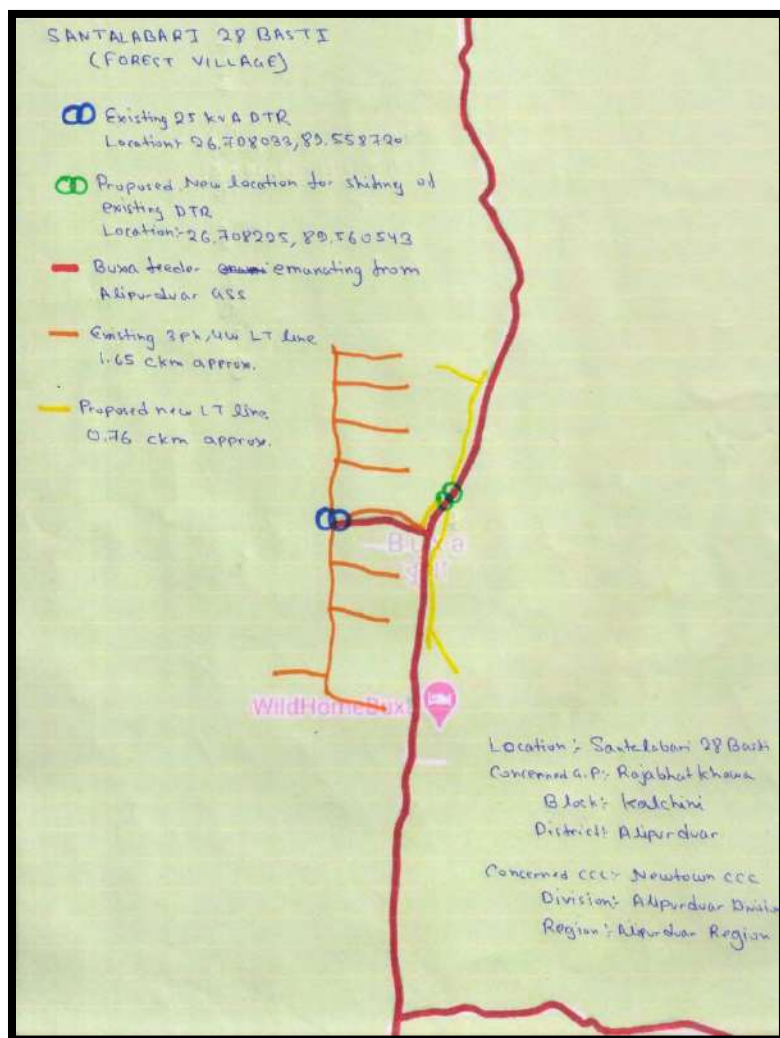 SANTALABARI 28 BASTI
(FOREST VILLAGE)
Existing 25 kVA DTR
Location:- 26.708033, 89.558720
Proposed New location for shiting of
existing DTR
Location:- 26.708225, 89.560543
Buxa feeder emanating from
Alipurduar GSS
Existing 3ph, 4w LT line
1.65 ckm approx.
Proposed new LT line
0.76 ckm approx.
Buxa
WildHomeBux
Location:- Santalabari 28 Basti
Concerned G.P:- Rajabhatkhawa
Block:- Kalchini
District:- Alipurduar
Concerned CCC:- Newtown CCC
Division:- Alipurduar Division
Region:- Alipurduar Region